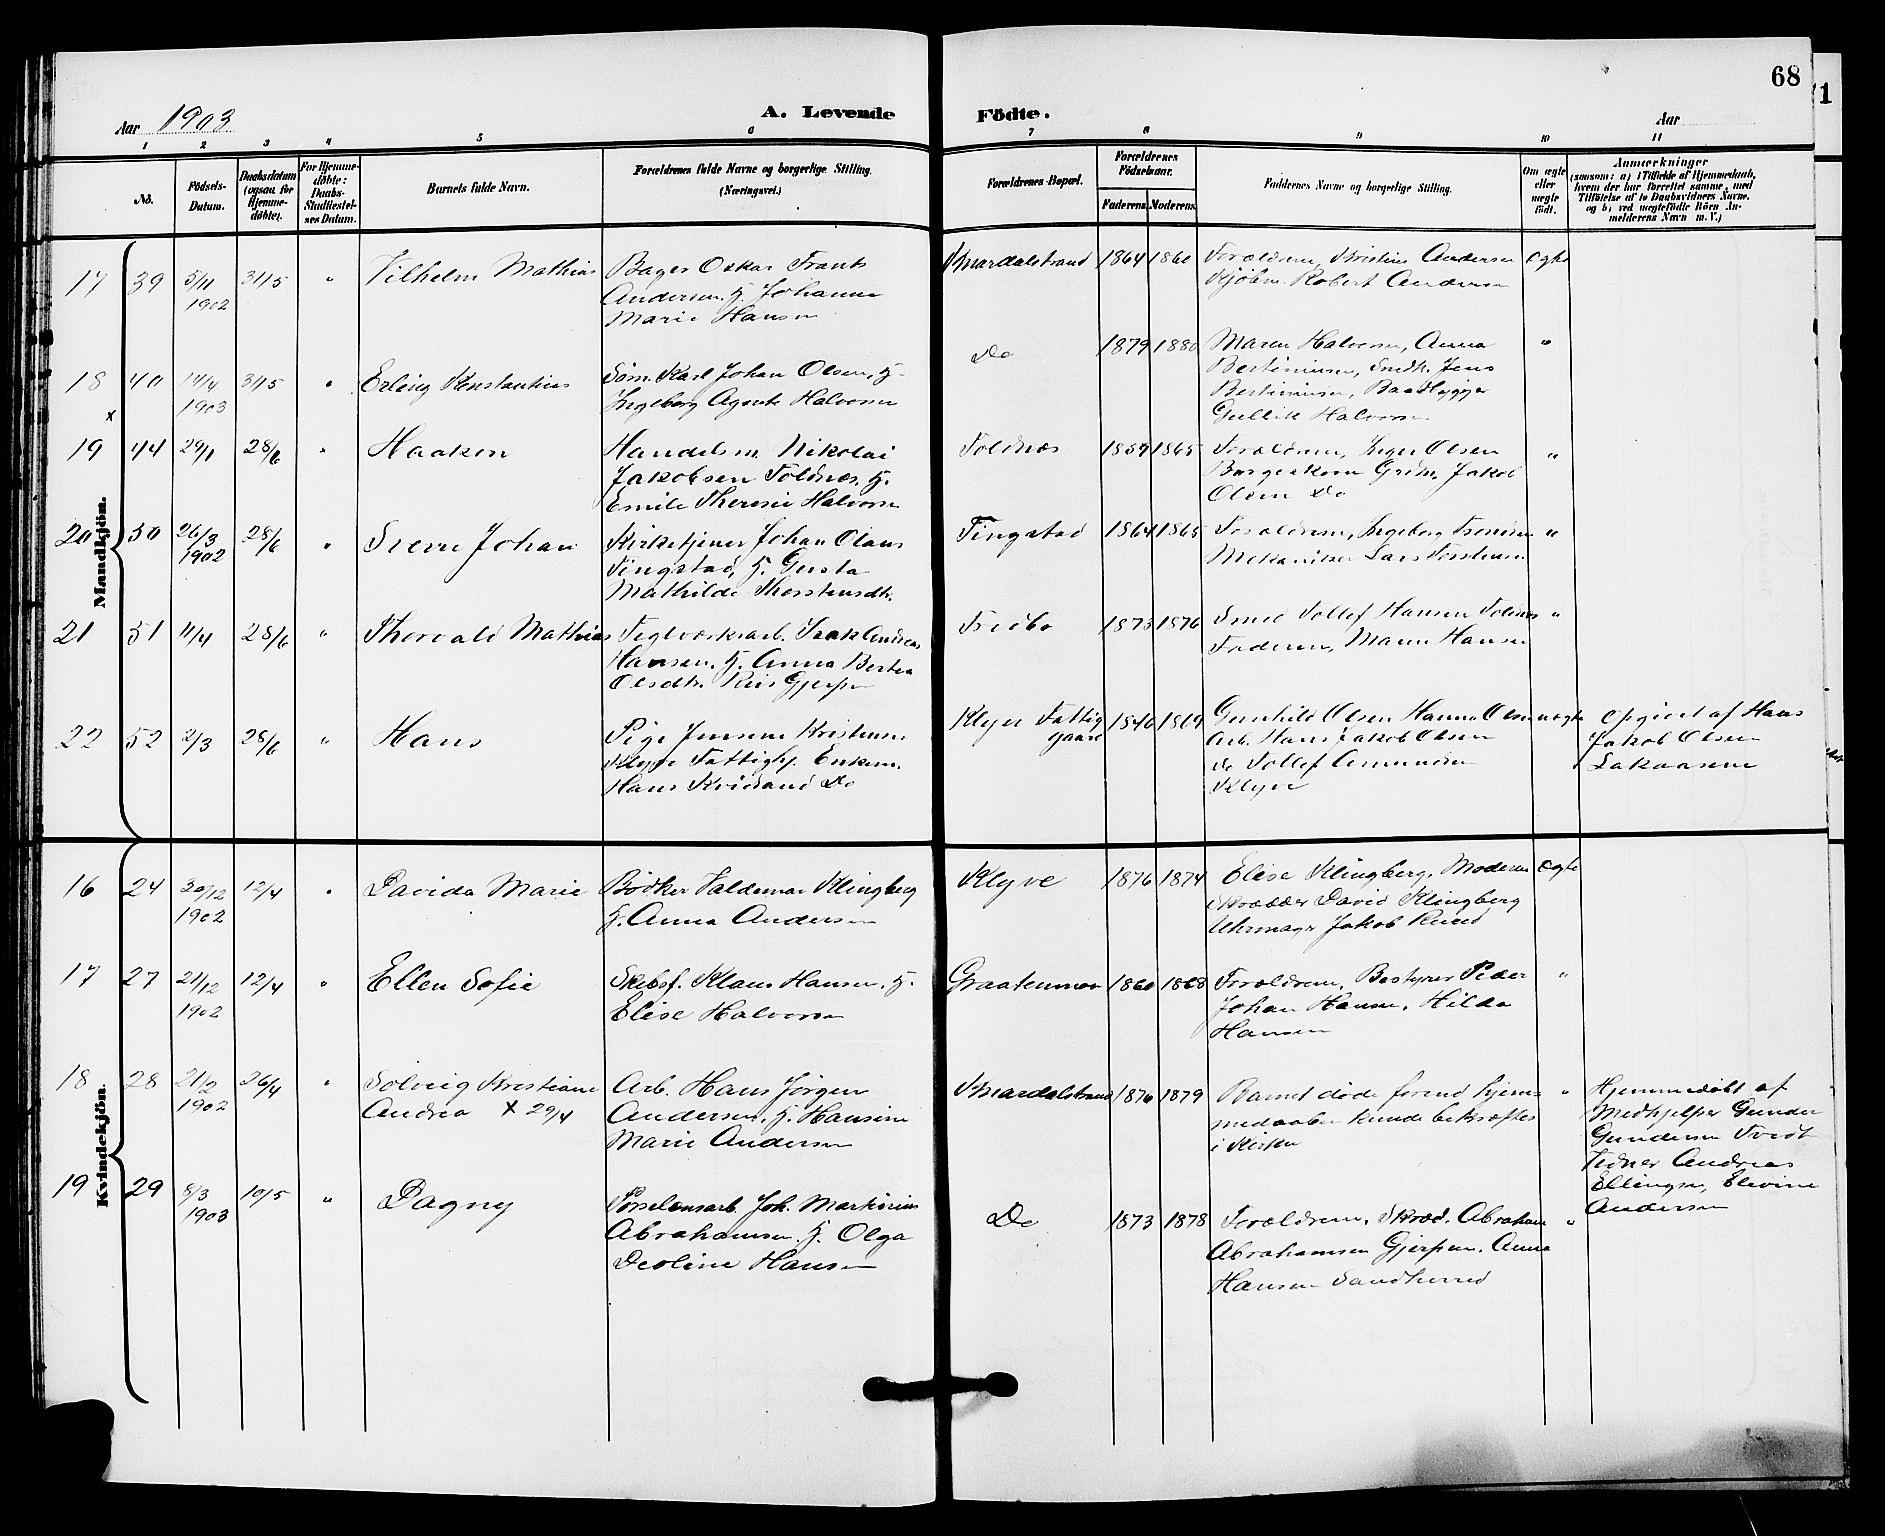 68
Aar 1903
A. Levende
Födte.
Aar
1 2 3 4 5 6 7 8 9 10 11
No.
Födsels-
Datum.
Daabsdatum
(ogsaa for
Hjemme-
döbte).
For Hjemme-
döbte:
Daabs-
Stadfæstel-
ses Datum.
Barnets fulde Navn.
Forældrenes fulde Navne og borgerlige Stilling.
(Næringsvei.)
Forældrenes Bopæl.
Forældrenes
Födselsaar.
Faderens.
Moderens.
Faddernes Navne og borgerlige Stilling.
Om ægte
eller
uægte
født.
Anmærkninger
(saasom: a) i Tilfælde af Hjemmedaab,
hvem der har forrettet samme, med
Tilföielse af to Daabsvidners Navne.
og b) ved uægtefödte Börn An-
melderens Navn m. V.)
Mandkjön.
17 39 5/11 1902 31/5 " Vilhelm Mathias
Bager Oskar Frants
Andersen. H. Johanne
Marie Hansen
Knardalstrand 1864 1860
Forældrene, Kristine Andersen
Kjøbm. Robert Andersen
Ægte
18 40 14/4 1903 31/5 " Erling Konstantius
Søm. Karl Johan Olsen, H.
Ingeborg Agnete Halvorsen
Do 1879 1880
Maren Halvorsen, Anna
Bertiniusen, Snedk. Jens
Bertiniusen, Baadbygger
Gullik Halvorsen
"
x
19 44 29/1 28/6 " Haakon
Handelsm. Nikolai
Jakobsen Toldnæs. H.
Emilie Theresie Halvorsen
Toldnæs 1859 1865
Forældrene, Inger Olsen
Borgeskom Grdm. Jakob
Olsen Do
"
20 50 26/3 1902 28/6 " Sverre Johan
Kirketjener Johan Olaus
Tingstad, H. Gusta
Mathilde Thorstensdt.
Tingstad 1864 1865
Forældrene, Ingeborg
Mekaniker Lars Torstensen
"
21 51 11/4 28/6 " Thorvald Mathias
Teglværksarb. Isak Andreas
Hansen. H. Anna Bertea
Olsdtr. Riis Gjerpen
1873 1876
Smed Tollef Hansen Tolnæs
Faderen, Maren Hansen
"
22 52 2/3 28/6 " Hans
Pige Jensine Kristensen
Klyve Fattighj. Enkem.
Hans Do
Klyve Fattig
gaard 1846 1869
Gunhild Olsen Hanna Olsen
Arb. Hans Jakob Olsen
Do Tollef Amundsen
Klyve
uægte
Opgivet af Hans
Jakob Olsen
Kvindekjön.
16 24 30/12 1902 12/4 " Davida Marie
Bödker Valdemar Klingberg
H. Anna Andersen
Klyve 1876 1874
Elise Klingberg. Moderen
Skrædder David Klingberg
Uhrmager Jakob Ruud
Ægte
17 27 21/12 1902 12/4 " Ellen Sofie
Skibsf. Klaus Hansen. H.
Elise Halvorsen
Graatenmoen 1860 1868
Forældrene, Bestyrer Peder
Johan Hansen, Hilda
Hansen
"
18 28 21/2 1902 26/4 " Solveig Kristiane
Andrea x 29/4
Arb. Hans Jörgen
Andersen. H. Hansine
Marie Andersen
Knardalstrand 1876 1879
Barnet døde førend hjem-
medaaben kunde bekræftes
i Kirken
"
Hjemmedøbt af
Medhjelper Gunder
Gundersen Tveidt
Vidner Andreas
Ellingsen, Elevine
Andersen
19 29 8/3 1903 10/5 " Dagny
Porselænsarb. Joh. Markorius
Abrahamsen. H. Olga
Deoline Hansen
Do 1873 1878
Forældrene. Skræd. Abraham
Abrahamsen Gjerpen. Anna
Hansen Sandherred
"